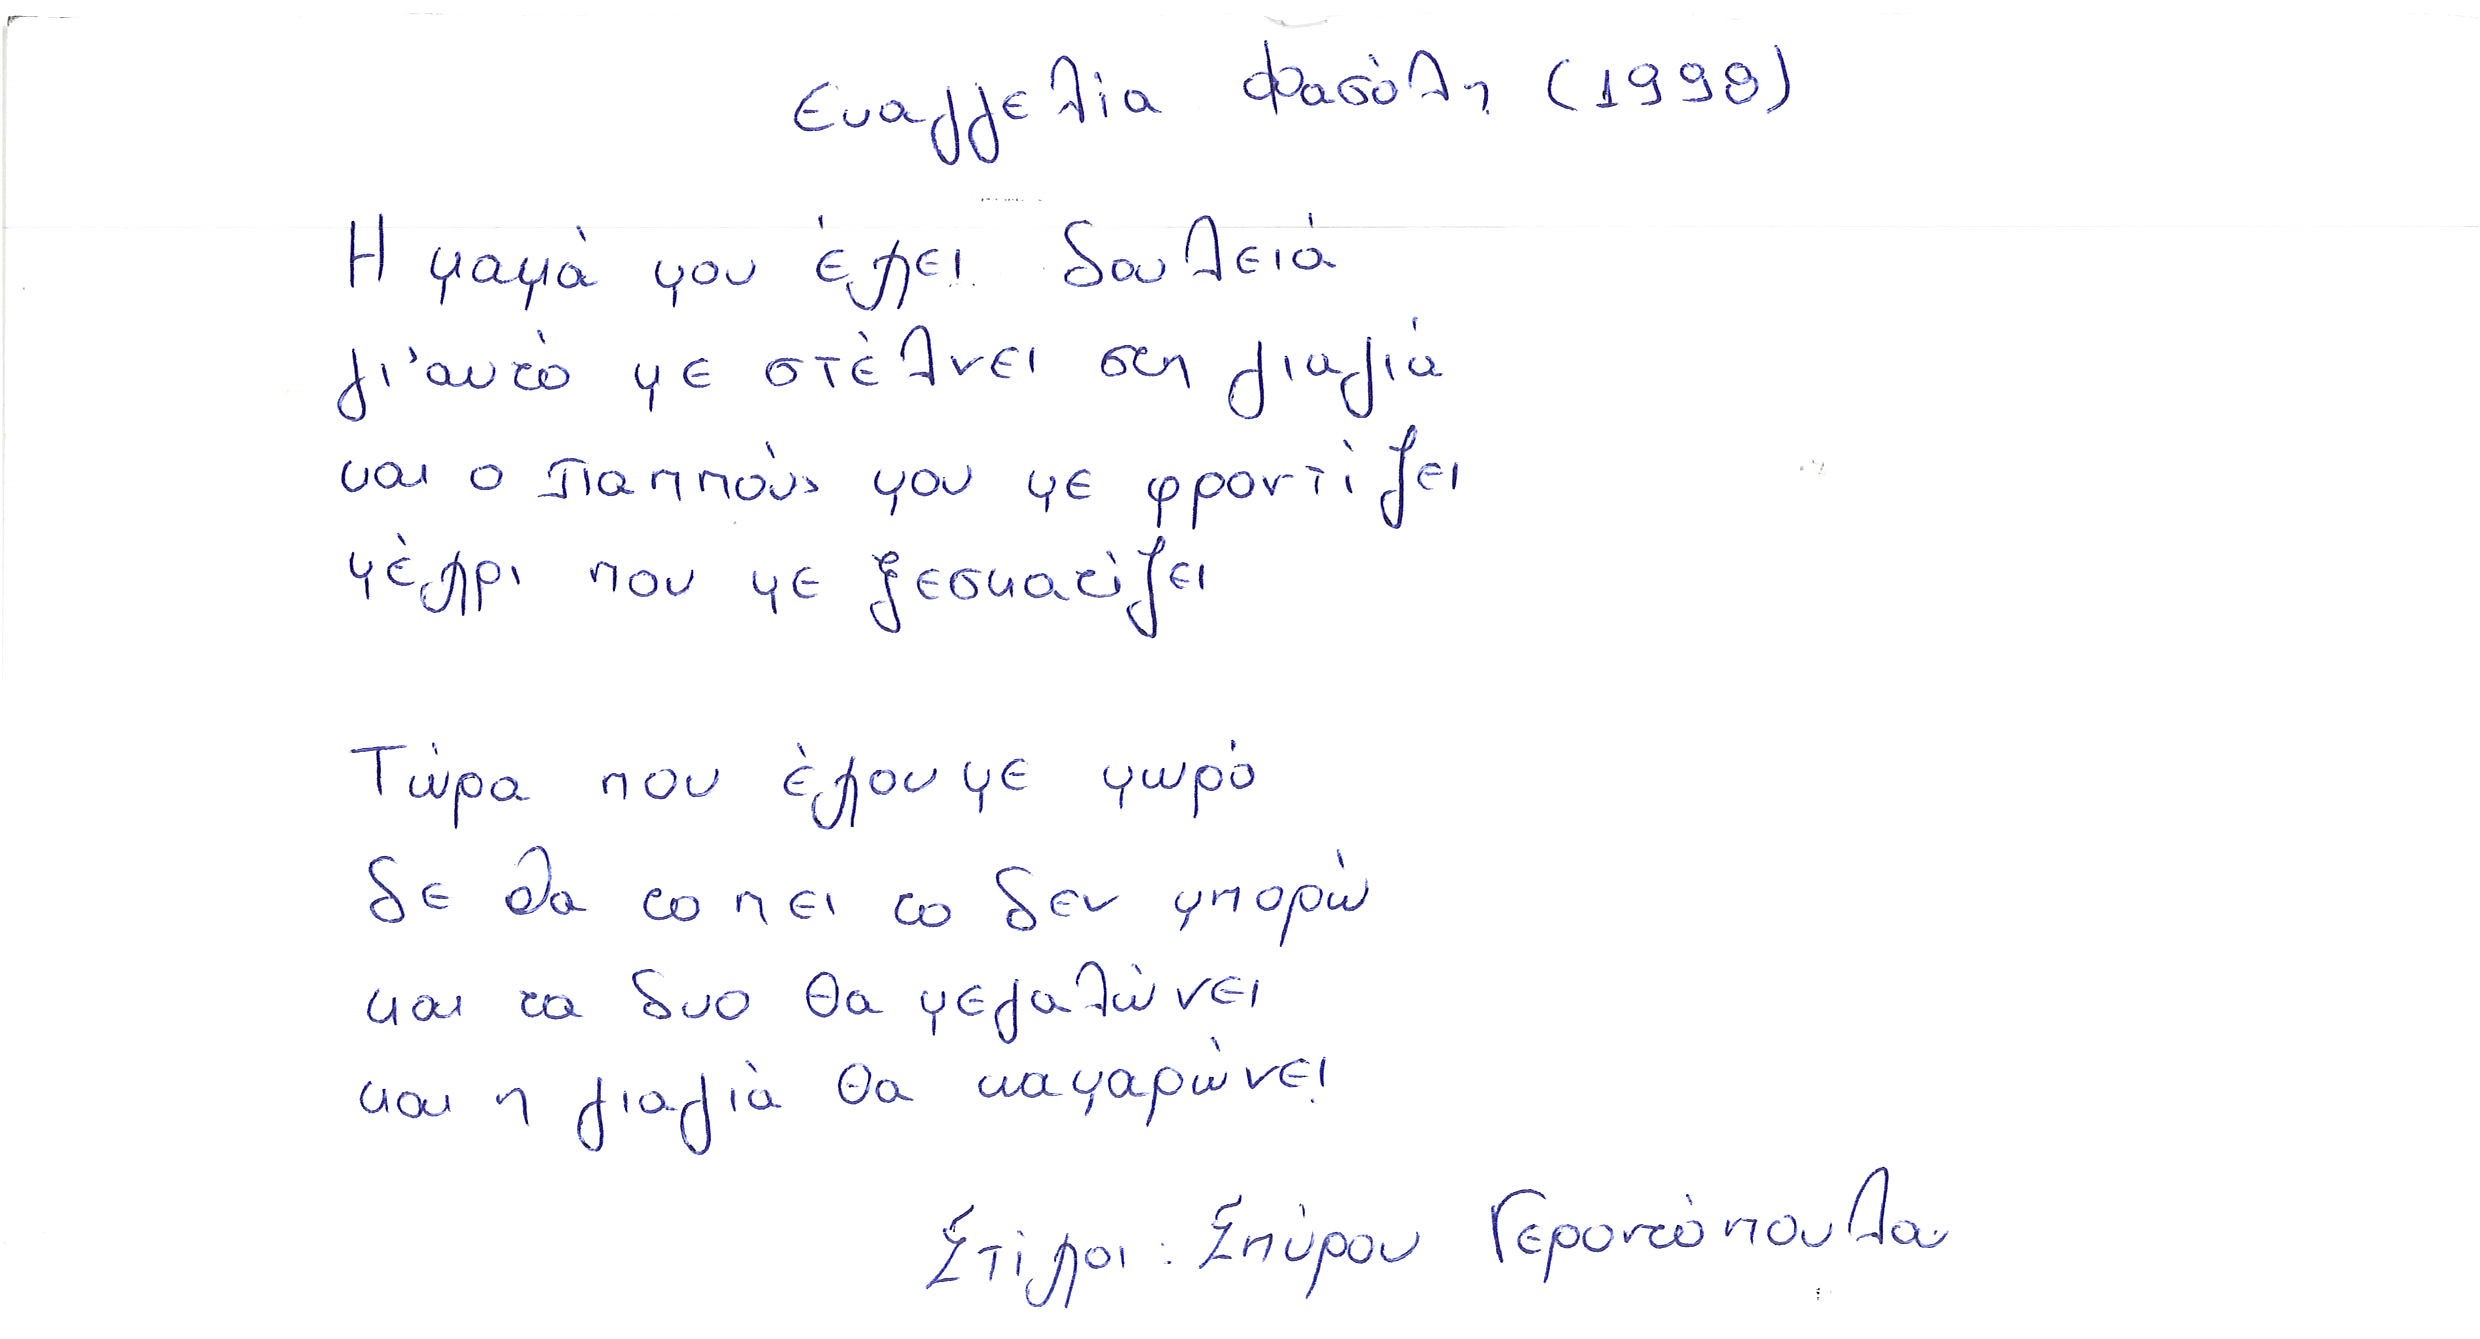 Ευαγγελία Φασόλη (1998)
Η μαμά μου έχει δουλειά
γι'αυτό με στέλνει στη γιαγιά
και ο παππούς μου με φροντίζει
μέχρι που με ξεσκατίζει
Τώρα που έχουμε μωρό
δε θα το πει το δεν μπορώ
και τα δυο θα μεγαλώνει
και η γιαγιά θα καμαρώνει
Στίχοι: Σπύρου Γεροντόπουλου